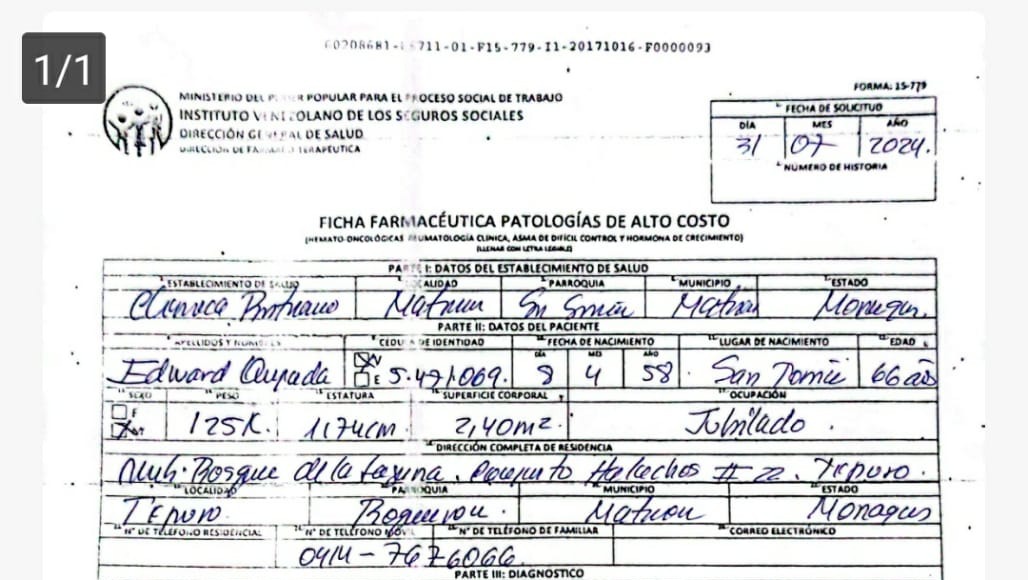 1/1
FORMA: 15-779
MINISTERIO DEL PODER POPULAR PARA EL PROCESO SOCIAL DE TRABAJO
INSTITUTO VENEZOLANO DE LOS SEGUROS SOCIALES
DIRECCIÓN GENERAL DE SALUD
FECHA DE SOLICITUD
DÍA MES AÑO
31 07 2024.
NÚMERO DE HISTORIA
FICHA FARMACÉUTICA PATOLOGÍAS DE ALTO COSTO
(HEMATO-ONCOLÓGICAS REUMATOLOGÍA CLÍNICA, ASMA DE DIFÍCIL CONTROL Y HORMONA DE CRECIMIENTO)
(LLENAR CON LETRA LEGIBLE)
PARTE I: DATOS DEL ESTABLECIMIENTO DE SALUD
ESTABLECIMIENTO DE SALUD LOCALIDAD PARROQUIA MUNICIPIO ESTADO
Maturin Maturin Monagas.
PARTE II: DATOS DEL PACIENTE
APELLIDOS Y NOMBRES CEDULA DE IDENTIDAD FECHA DE NACIMIENTO LUGAR DE NACIMIENTO EDAD
DÍA MES AÑO
Edward V E 8 4 58. San 66 años
SEXO PESO ESTATURA SUPERFICIE CORPORAL OCUPACIÓN
F M 125K. 1,74cm. 2,40m2. Jubilado.
DIRECCIÓN COMPLETA DE RESIDENCIA
Bosque de la Laguna. # 22. Tipuro.
LOCALIDAD PARROQUIA MUNICIPIO ESTADO
Tipuro. Maturin Monagas
N° DE TELÉFONO RESIDENCIAL N° DE TELÉFONO MÓVIL N° DE TELÉFONO DE FAMILIAR CORREO ELECTRÓNICO
0414-7676066.
PARTE III: DIAGNOSTICO